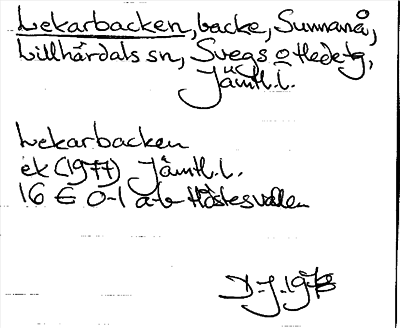 Lekarbacken, backe, Sunnanå,
Lillhärdals sn, Svegs o Hede tg,
Jämtl. l.
Lekarbacken
ek (1977) Jämtl. l.
16 E 0-1 a-b Höstesvallen
D-J-1978